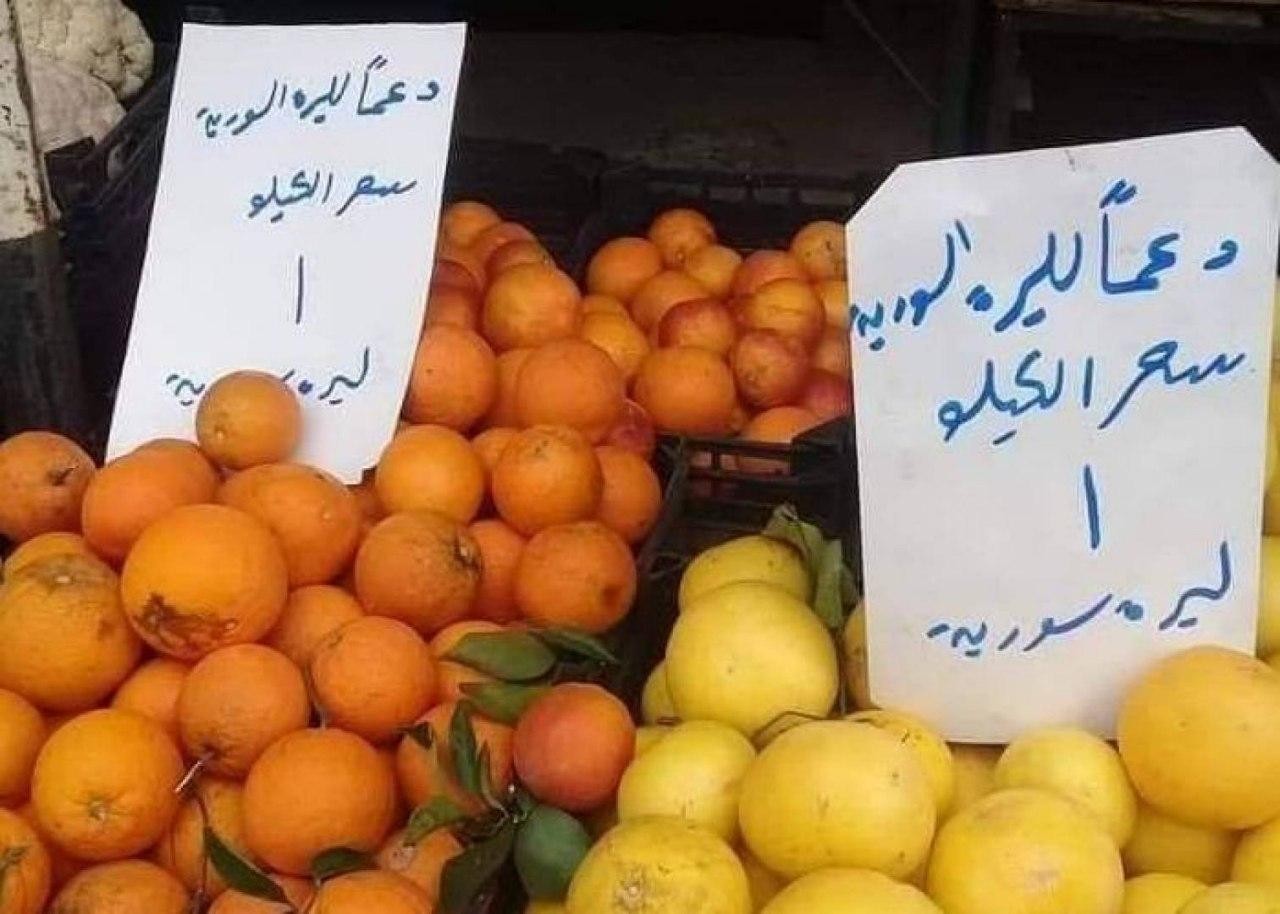 دعماً لليرة السورية
سعر الكيلو
١
ليرة سورية
دعماً لليرة السورية
سعر الكيلو
١
ليرة سورية